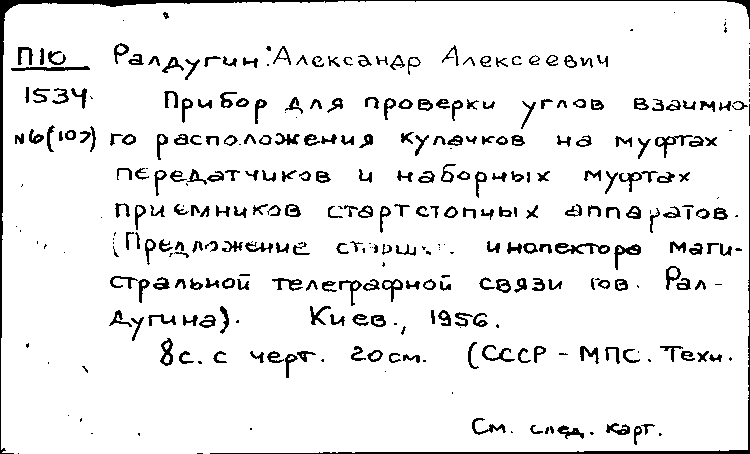 П10 Ралдугин Александр Алексеевич
1534 Прибор для проверки углов взаимно-
№6(107) го расположения кулачков на муфтах
передатчиков и наборных муфтах
приемников стартстопных аппаратов.
(Предложение инспектора маги-
стральной телеграфной связи тов. Рал-
дугина). Киев, 1956.
8с. с черт. 20см. (СССР - МПС. Техн.
См. след. карт.